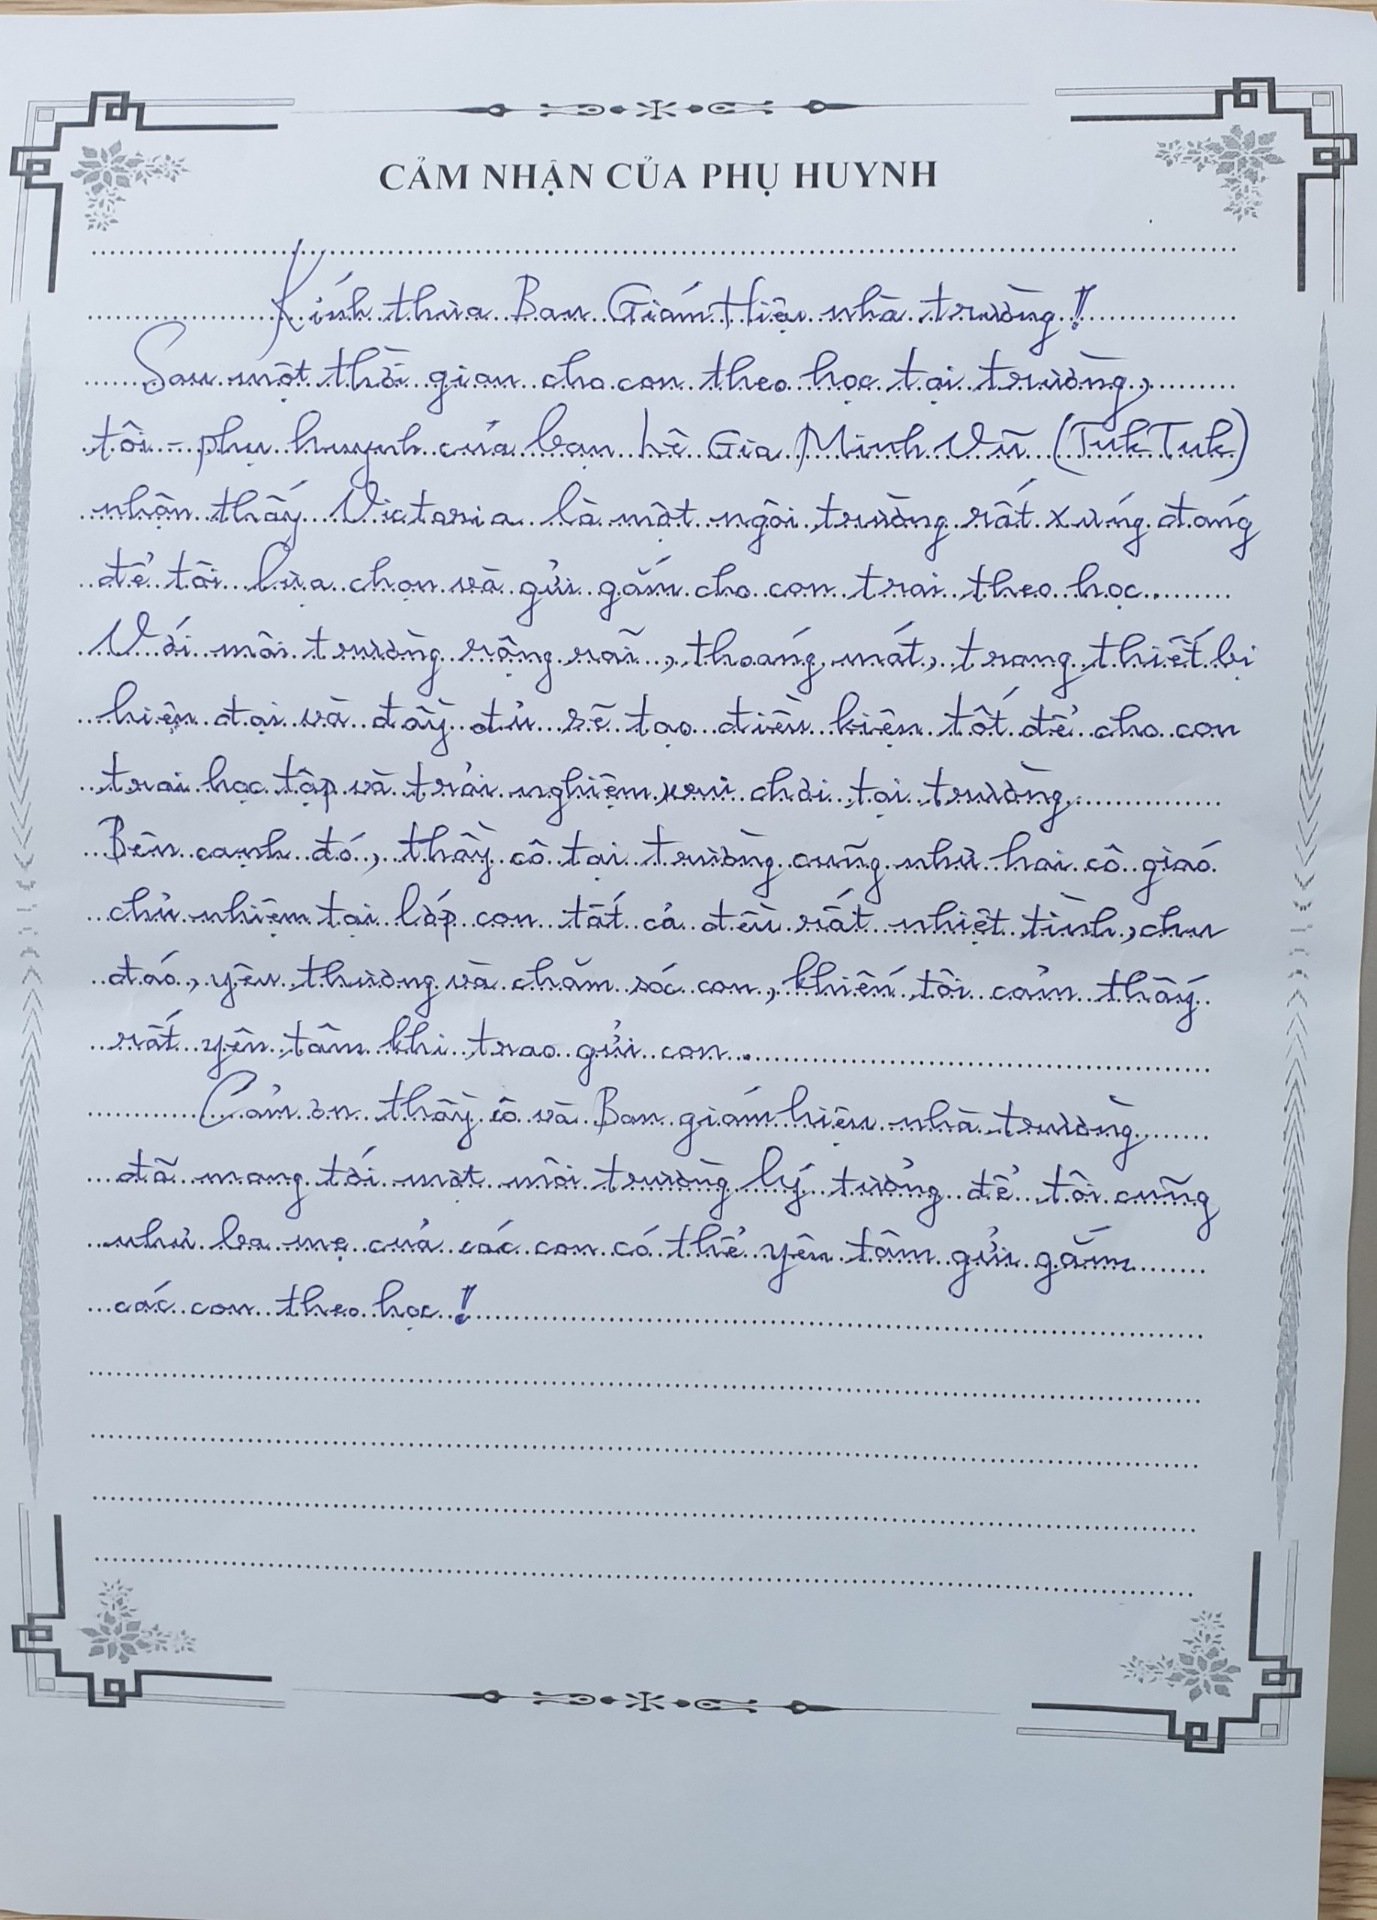 CẢM NHẬN CỦA PHỤ HUYNH
Kính thưa Ban Giám Hiệu nhà trường!
Sau một thời gian cho con theo học tại trường,
tôi - phụ huynh của bạn Lê Gia Minh Vũ (Tuk Tuk)
nhận thấy Victoria là một ngôi trường rất xứng đáng
để tôi lựa chọn và gửi gắm cho con trai theo học.
Với môi trường rộng rãi, thoáng mát, trang thiết bị
hiện đại và đầy đủ sẽ tạo điều kiện tốt để cho con
trai học tập và trải nghiệm vui chơi tại trường.
Bên cạnh đó, thầy cô tại trường cũng như hai cô giáo
chủ nhiệm tại lớp con tất cả đều rất nhiệt tình, chu
đáo, yêu thương và chăm sóc con, khiến tôi cảm thấy
rất yên tâm khi trao gửi con.
Cảm ơn thầy cô và Ban giám hiệu nhà trường
đã mang tới một môi trường lý tưởng để tôi cũng
như ba mẹ của các con có thể yên tâm gửi gắm
các con theo học!